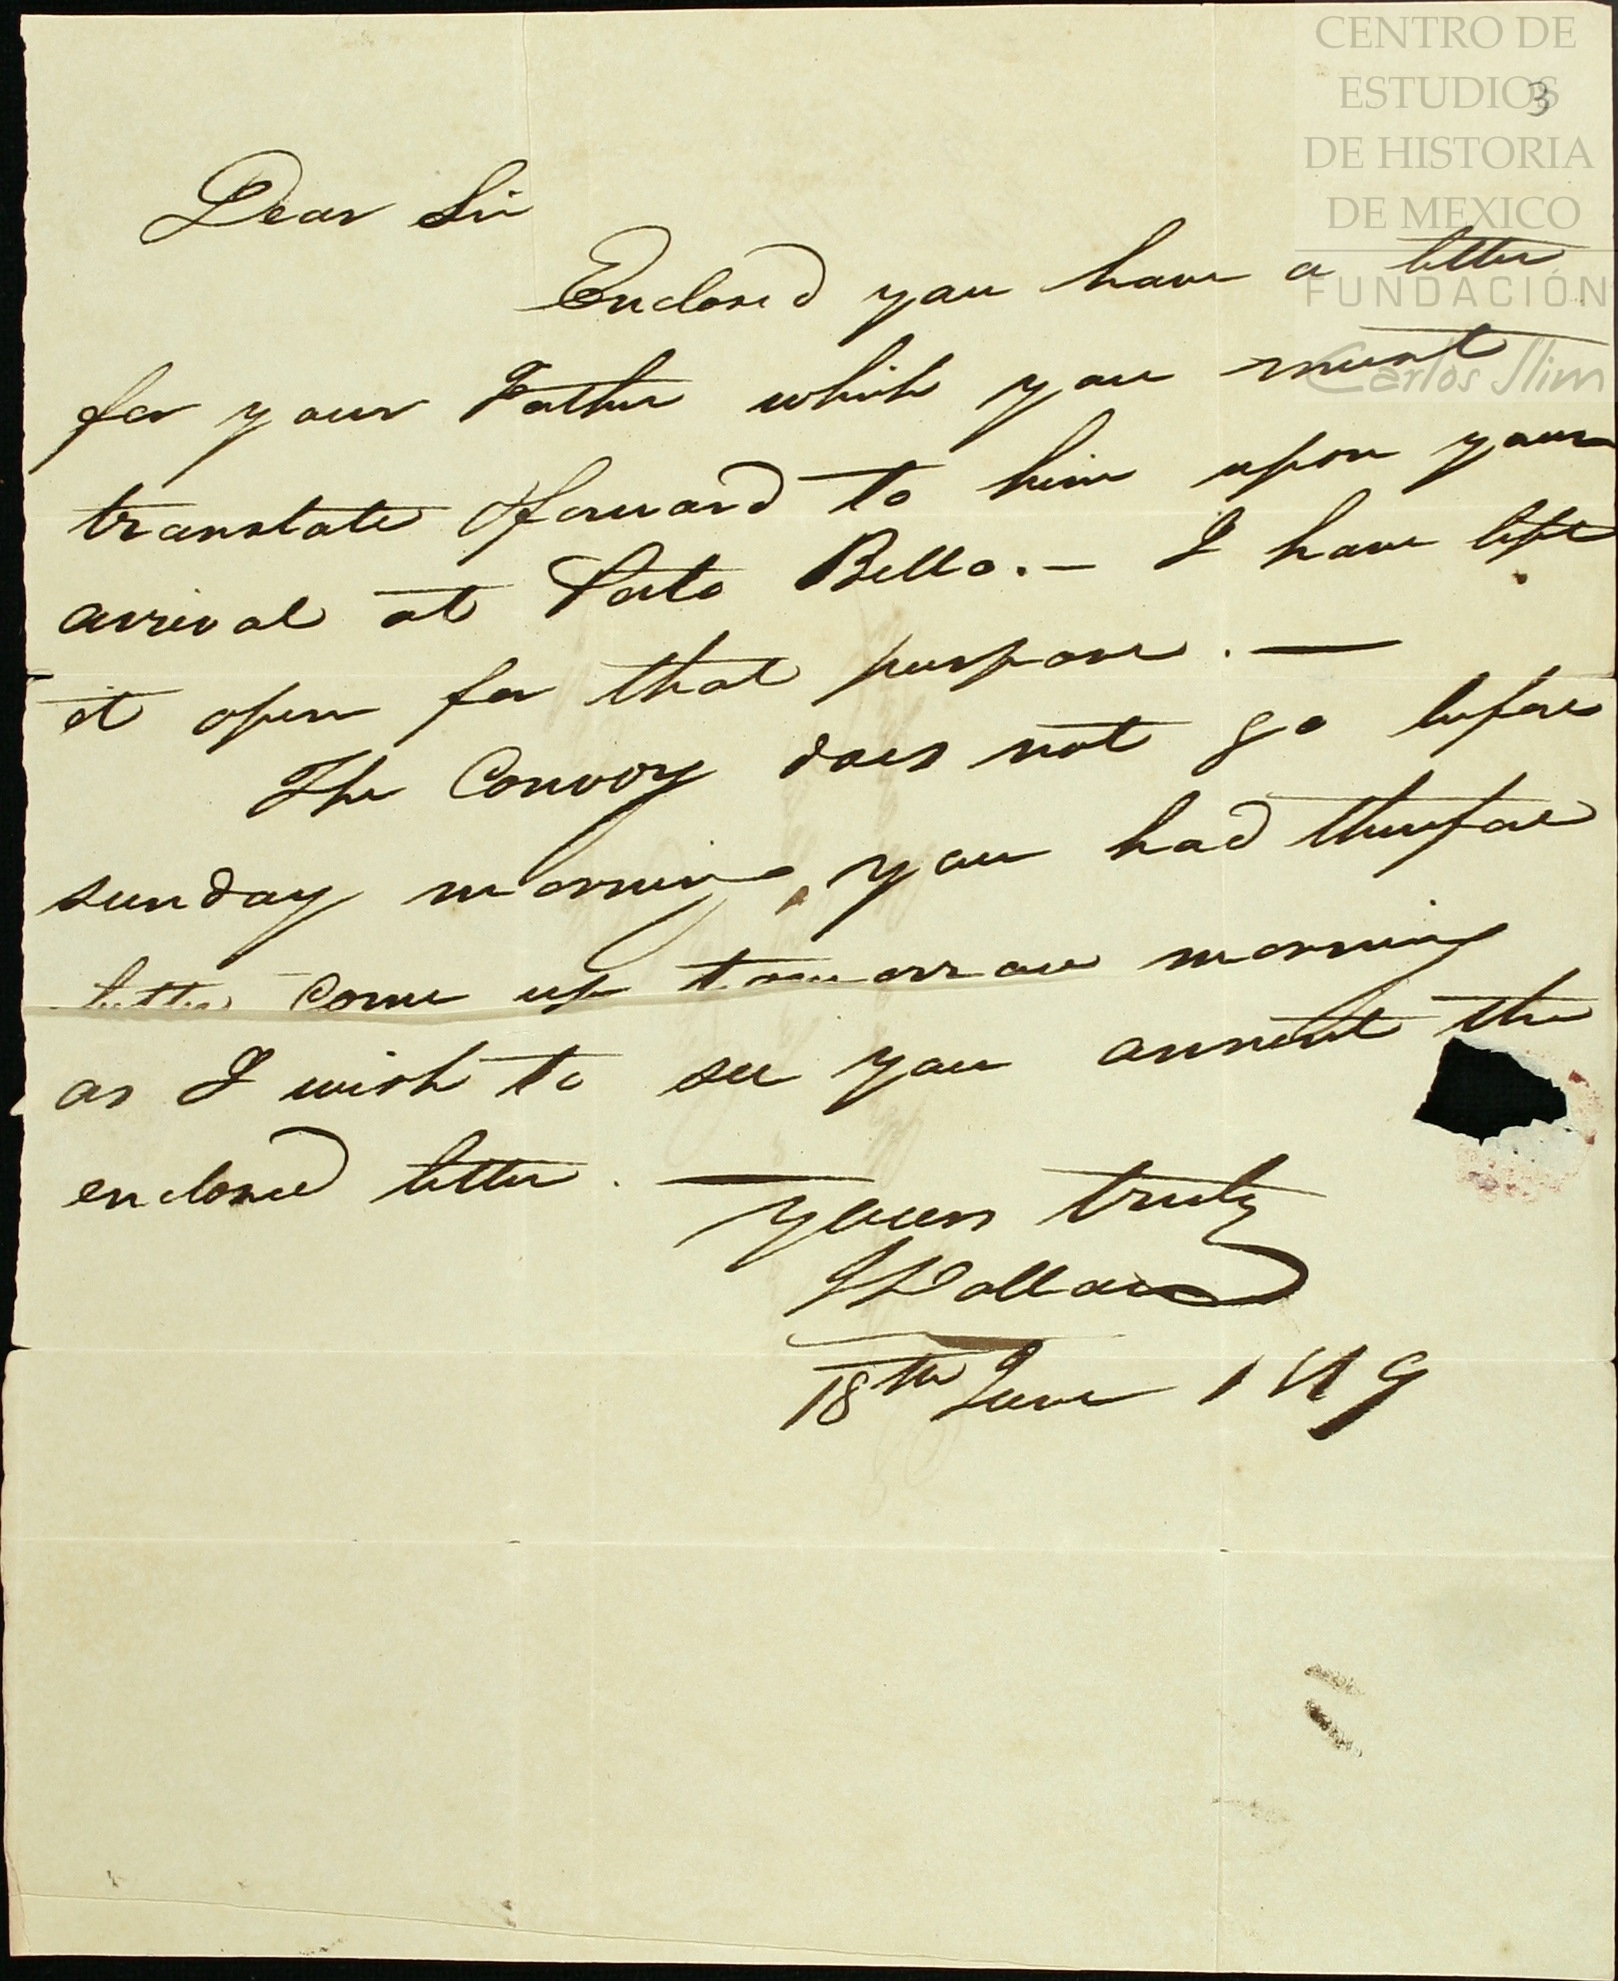 CENTRO DE
ESTUDIOS
DE HISTORIA
DE MEXICO
FUNDACIÓN
Carlos Slim
3
Dear Sir
Enclosed you have a letter
for your Father which you must
translate & forward to him upon your
arrival at Porto Bello. — I have left
it open for that purpose. —
The Convoy does not go before
sunday morning, you had therefore
better come up tomorrow morning
as I wish to see you anent the
enclosed letter. —
yours truly
18th June 1819